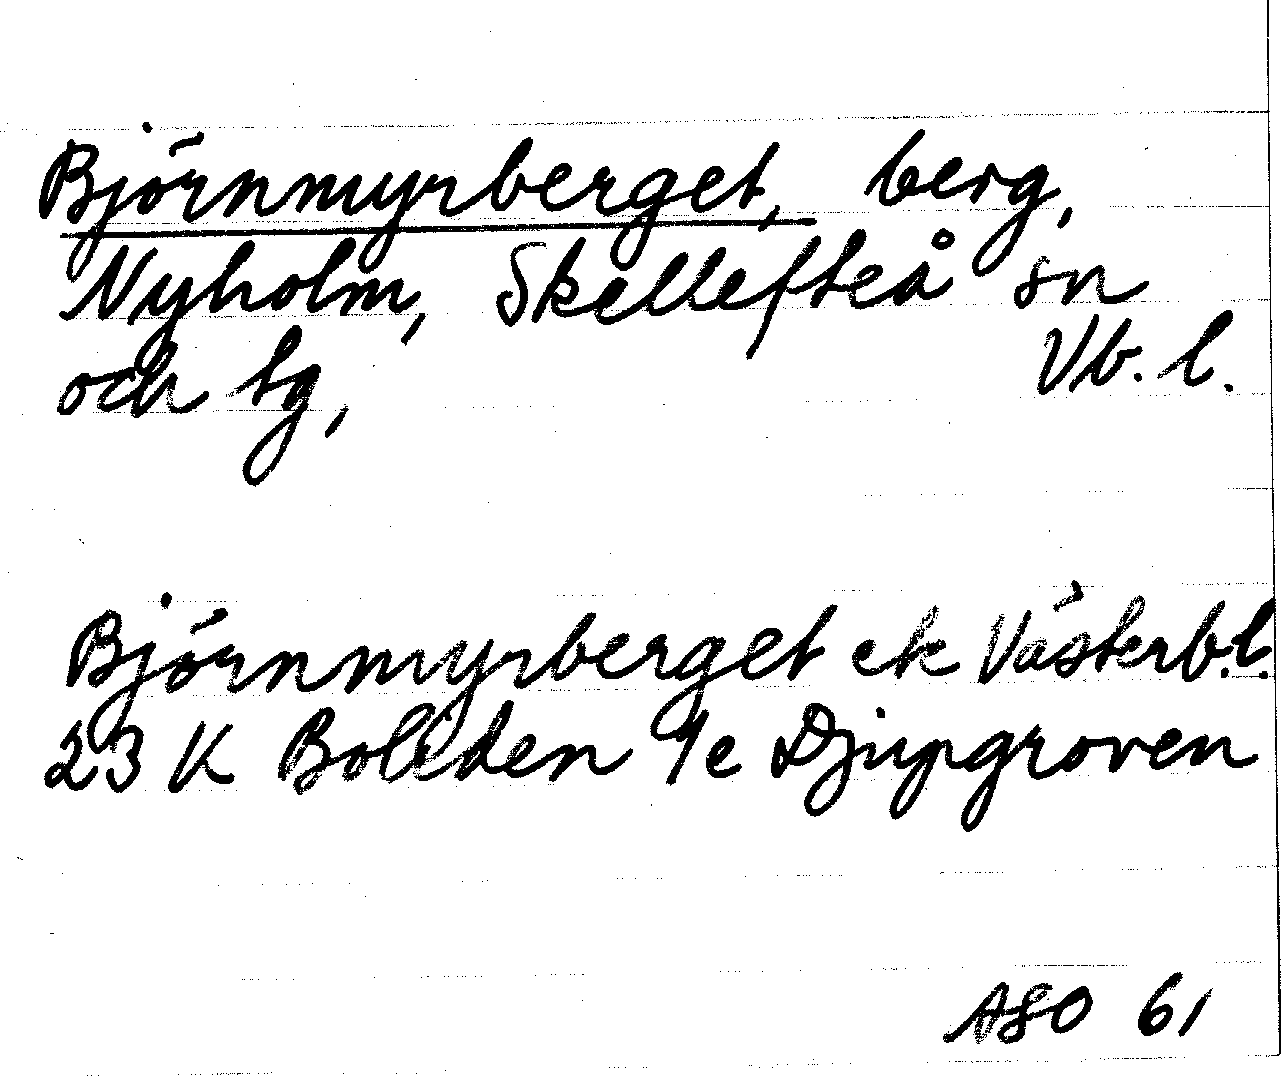 Björnmyrberget, berg,
Nyholm, Skellefteå sn
och tg, Vb. l.
Björnmyrberget ek Västerb.l.
23 K Boliden 9e Djupgroven
ASO 61